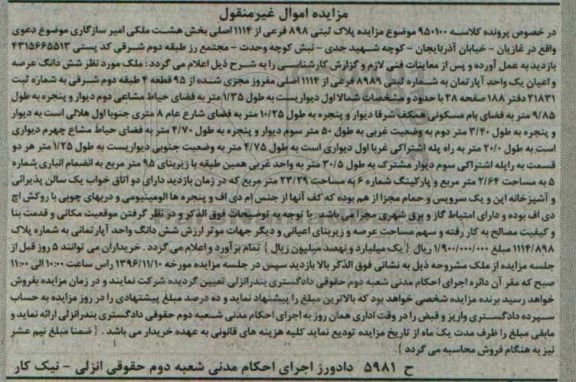 مزایده اموال غیرمنقول
در خصوص پرونده کلاسه ۹۵۰۱۰۰ موضوع مزایده پلاک ثبتی ۸۹۸ فرعی از ۱۱۱۴ اصلی بخش هشت ملکی امیر سازگاری موضوع دعوی
واقع در غازیان - خیابان آذربایجان - کوچه شهید جدی - نبش کوچه وحدت - مجتمع رز طبقه دوم شرقی کد پستی ۴۳۱۵۶۶۵۵۱۳
بازدید به عمل آورده و پس از معاینات فنی لازم و گزارش کارشناسی را به شرح ذیل اعلام می گردد: ملک مورد نظر شش دانگ عرصه
و اعیان یک واحد آپارتمان به شماره ثبتی ۸۹۸۹ فرعی از ۱۱۱۴ اصلی مفروز مجزی شده از ۹۵ قطعه ۴ طبقه دوم شرقی به شماره ثبت
۲۱۸۳۱ دفتر ۱۸۸ صفحه ۲۸ با حدود و مشخصات شمالا اول دیواریست به طول ۱/۳۵ متر به فضای حیاط مشاعی دوم دیوار و پنجره به طول
۹/۸۵ متر به فضای بام مسکونی همکف شرقا دیوار و پنجره به طول ۱۰/۲۵ متر به فضای شارع عام ۸ متری جنوبا اول هلالی است به دیوار
و پنجره به طول ۳/۴۰ متر دوم به وضعیت غربی به طول ۵۰ متر سوم دیوار و پنجره به طول ۴/۷۰ متر به فضای حیاط مشاع چهارم دیواری
است به طول ۲۰/۰ متر به راه پله اشتراکی غربا اول دیواری است به طول ۴/۷۵ متر به وضعیت جنوبی دیواریست به طول ۱/۲۵ متر هر دو
قسمت به راپله اشتراکی سوم دیوار مشترک به طول ۳۰/۵ متر به واحد غربی همین طبقه با زیربنای ۹۵ متر مربع به انضمام انباری شماره
۵ به مساحت ۲/۶۴ متر مربع و پارکینگ شماره ۶ به مساحت ۲۳/۲۹ متر مربع که در زمان بازدید دارای دو اتاق خواب یک سالن پذیرائی
و آشپزخانه اپن و یک سرویس و حمام مجزا از هم بوده که کف آنها از جنس ام دی اف و پنجره ها الومینیومی و دربهای چوبی با روکش اچ
دی اف بوده و دارای امتیاز گاز و برق شهری مجزا می باشد. با توجه به توضیحات فوق الذکر و در نظر گرفتن موقعیت مکانی و قدمت بنا
و کیفیت مصالح به کار رفته و سهم مساحت عرصه و زیربنای اعیانی و دیگر جهات موثر ارزش شش دانگ واحد آپارتمانی به شماره پلاک
۱۱۱۴/۸۹۸ مبلغ ۱/۹۰۰/۰۰۰/۰۰۰ ریال { یک میلیارد و نهصد میلیون ریال } تمام برآورد و اعلام می گردد. خریداران می توانند ۵ روز قبل از
جلسه مزایده از ملک مشروحه ذیل به نشانی فوق الذکر بالا بازدید سپس در جلسه مزایده مورخه ۱۳۹۶/۱۱/۱۰ راس ساعت ۱۰:۰۰ الی ۱۱:۰۰
صبح که مقر آن دائره اجرای احکام مدنی شعبه دوم حقوقی دادگستری بندرانزلی تعیین گردیده شرکت نمایند و در زمان مزایده بفروش
خواهد رسید برنده مزایده شخصی خواهد بود که بالاترین مبلغ را پیشنهاد نماید و ده درصد مبلغ پیشنهادی را در روز مزایده به حساب
سپرده دادگستری واریز و قبض را در وقت اداری همان روز به اجرای احکام مدنی شعبه دوم حقوقی دادگستری بندرانزلی ارائه نماید و
مابقی مبلغ را ظرف مدت یک ماه از تاریخ مزایده تودیع نماید کلیه هزینه های قانونی به عهده خریدار می باشد. { ضمنا مبلغ نیم عشر
نیز به هنگام فروش محاسبه می گردد }.
ح ۵۹۸۱ دادورز اجرای احکام مدنی شعبه دوم حقوقی انزلی - نیک کار